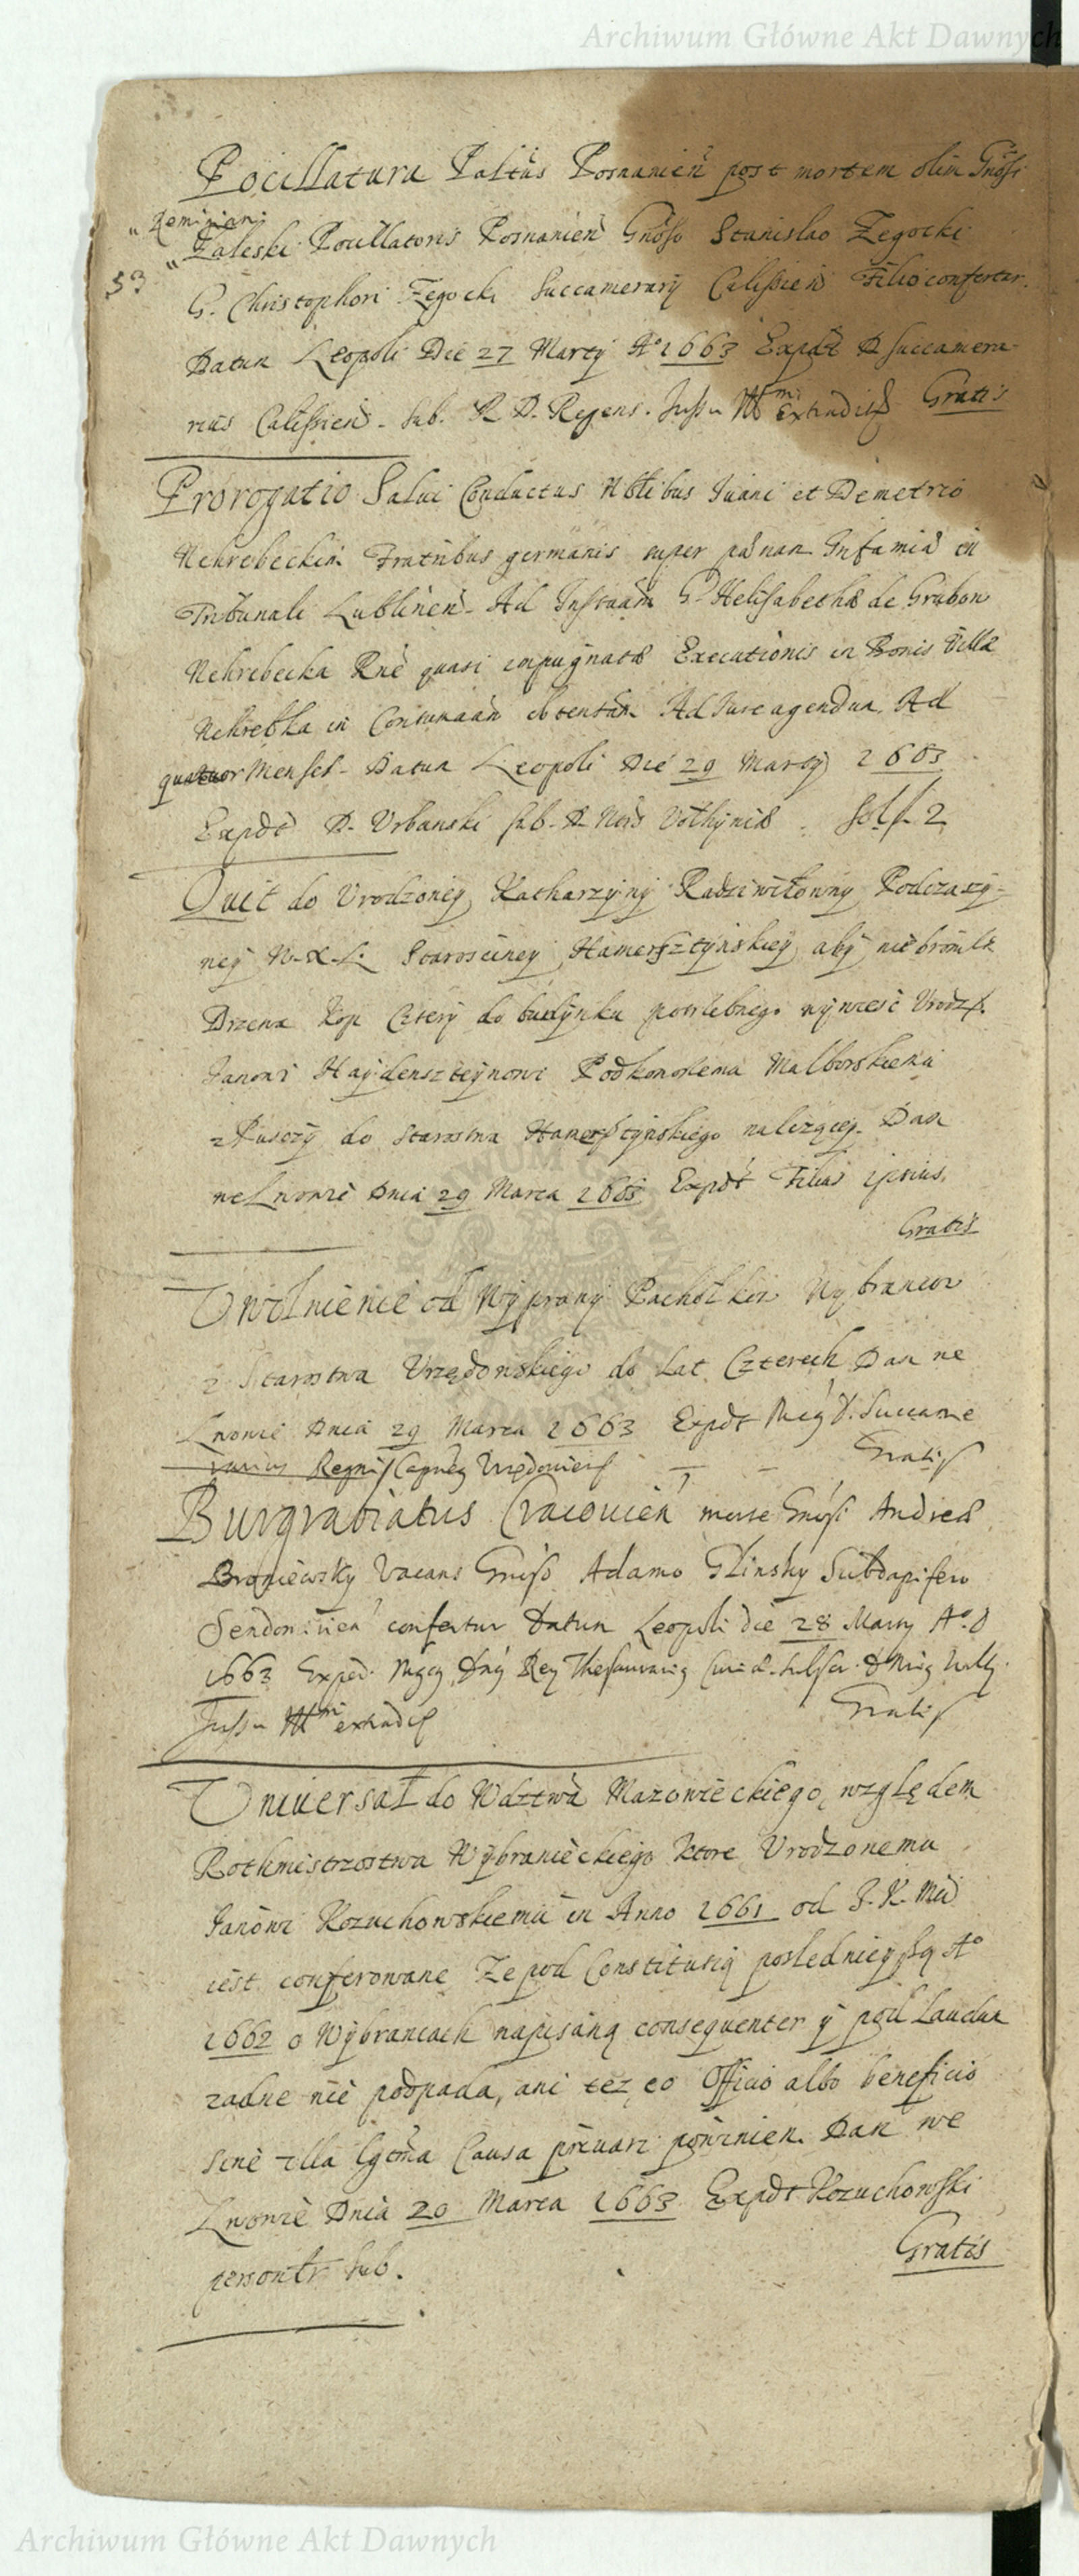 Archiwum Główne Akt Dawnych
Pocillatura Paltus Posnanień post mortem olim Gnosi
"Remigiani
53 " Zaleski Pocillatoris Posnanień Gnoso Stanislao Zegocki
G. Christophori Zegocki Succamerarÿ Calissień Filio confertur.
Datum Leopoli Die 27 Martÿ A° 1663 Expdt D Succamera-
rius Calissień. sub. R D. Regens. Jussu Illmi Extradidi Gratis
Prorogatio Salui Conductus Nblibus Juani et Demetrio
Nehrebeckim Fratribus germanis super pænam Infamiæ in
Tribunali Lublinen. Ad Instaam G. Helisabethæ de Grabon
Nehrebecka Rne quasi impugnatæ Executionis in Bonis Villa
Nehrebka in Contumaam obtentam Ad Jure agendum. Ad
quatuor Menses. Datum Leopoli Die 29 Martÿ 1663
Expdt D. Urbanski sub. D Nris Volhyniæ. Sol f. 2
Quit do Vrodzoneÿ Katharzÿnÿ Radziwiłownÿ Podczaszÿ-
neÿ W. X. L. Starosciney Hamersztÿnskieÿ abÿ nie broniła
Drzewa Kop Czterÿ do budÿnku potrzebnego wÿwiesć Vrodz.
Janowi Haÿdensztÿnowi Podkomorzemu Malborskiemu
z Pusczÿ do Starostwa Hamersztÿnskiego należącej. Dan
we Lwowie Dnia 29 Marca 1663 Expdt Filius ipsius.
Gratis
Uwolnienie od Wÿprawÿ Pachołkow Wybrancow
z Starostwa Vrzędowskiego do Lat Czterech Dan we
Lwowie Dnia 29 Marca 1663 Expdt Mcg D. Succame
rarius Regni Capneg Urzędowien Gratis
Burgrabiatus Cracouień morte Gnosi Andreæ
Broniewsky Vacans Gnoso Adamo Glinsky Subdapifero
Sendomirien confertur Datum Leopoli die 28 Marty A° D
1663 Exped. Mgcg Dny Reg Thesaurarig Curiæ. subscr. D Nrig Volhy.
Jussu Illmi extradidi Gratis
Uniuersał do Wdztwa Mazowieckiego, względem
Rothmistrzostwa Wÿbranieckiego ktore Vrodzonemu
Janowi Kozuchowskiemu in Anno 1661 od J. K. Mci
iest conferowane Ze pod Constitucią posledniey są A°
1662 o Wÿbrancach napisaną consequenter ÿ pod Laudum
zadne nie podpada, ani tez eo Officio albo beneficio
sine illa Lgtma Causa priuari powinien. Dan we
Lwowie Dnia 20 Marca 1663 Expdt Kozuchowski
personlr sub. Gratis
Archiwum Główne Akt Dawnych